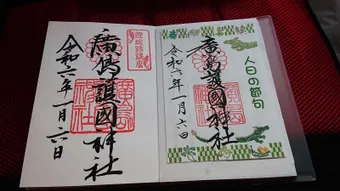 廣島護國神社
令和六年一月六日
人日の節句
廣島護國神社
令和六年一月六日